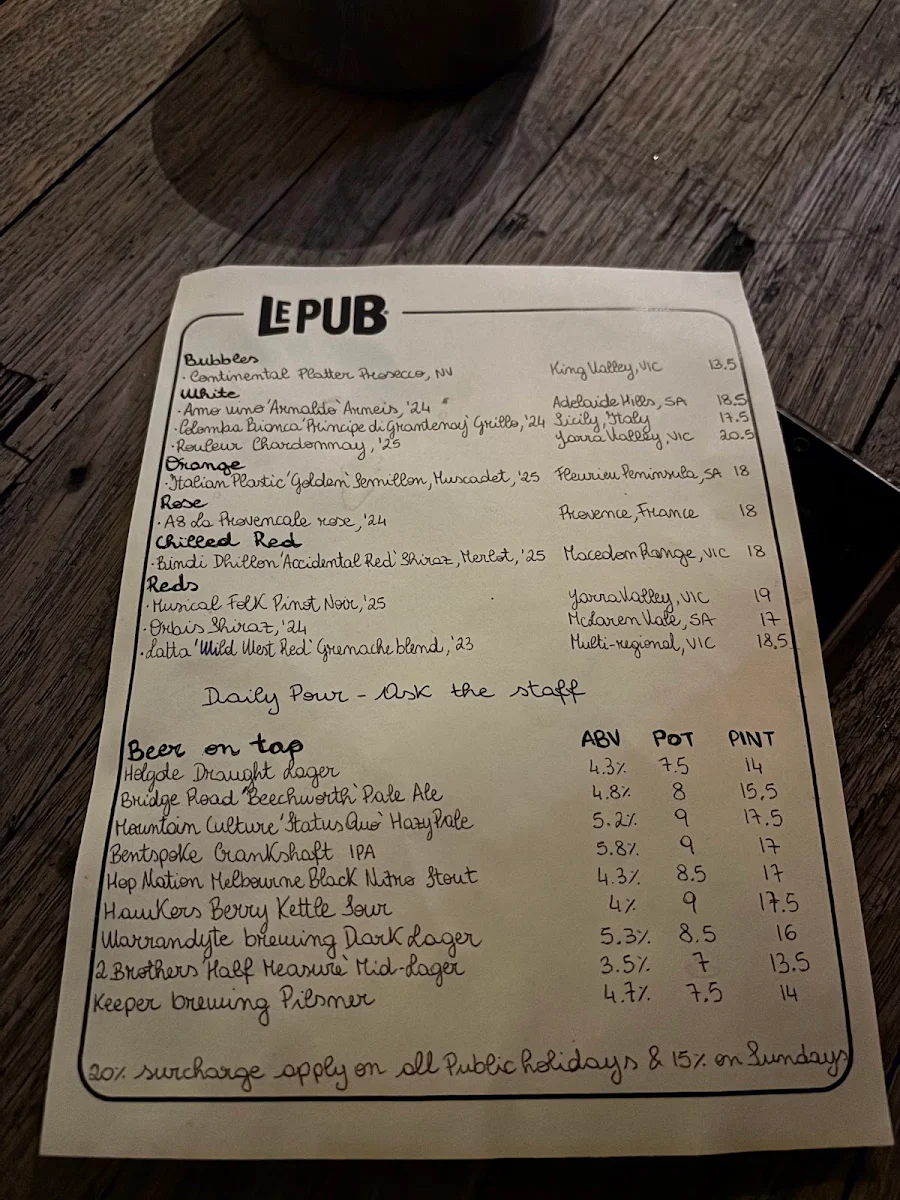 LE PUB
Bubbles
· Continental Platter Prosecco, NV King Valley, VIC 13.5
White
· Amo vino 'Arnaldo' Arneis, '24 Adelaide Hills, SA 18.5
· Colomba Bianca 'Principe di Granteney' Grillo, '24 Sicily, Italy 17.5
· Rouleur Chardonnay, '25 Yarra Valley, VIC 20.5
Orange
· Italian Plastic 'Golden' Semillon, Muscadet, '25 Fleurieu Peninsula, SA 18
Rose
· A8 La Provencale rose, '24 Provence, France 18
Chilled Red
· Bindi Dhillon 'Accidental Red' Shiraz, Merlot, '25 Macedon Range, VIC 18
Reds
· Musical Folk Pinot Noir, '25 Yarra Valley, VIC 19
· Orbis Shiraz, '24 McLaren Vale, SA 17
· Latta 'Wild West Red' Grenache blend, '23 Multi-regional, VIC 18.5
Daily Pour - Ask the staff
Beer on tap ABV POT PINT
Holgate Draught Lager 4.3% 7.5 14
Bridge Road 'Beechworth' Pale Ale 4.8% 8 15,5
Mountain Culture 'Status Quo' Hazy Pale 5.2% 9 17.5
Bentspoke Crankshaft IPA 5.8% 9 17
Hop Nation Melbourne Black Nitro Stout 4.3% 8.5 17
Hawkers Berry Kettle Sour 4% 9 17.5
Warrandyte brewing Dark Lager 5.3% 8.5 16
2 Brothers 'Half Measure' Mid-Lager 3.5% 7 13.5
Keeper brewing Pilsner 4.7% 7.5 14
20% surcharge apply on all Public holidays & 15% on Sundays